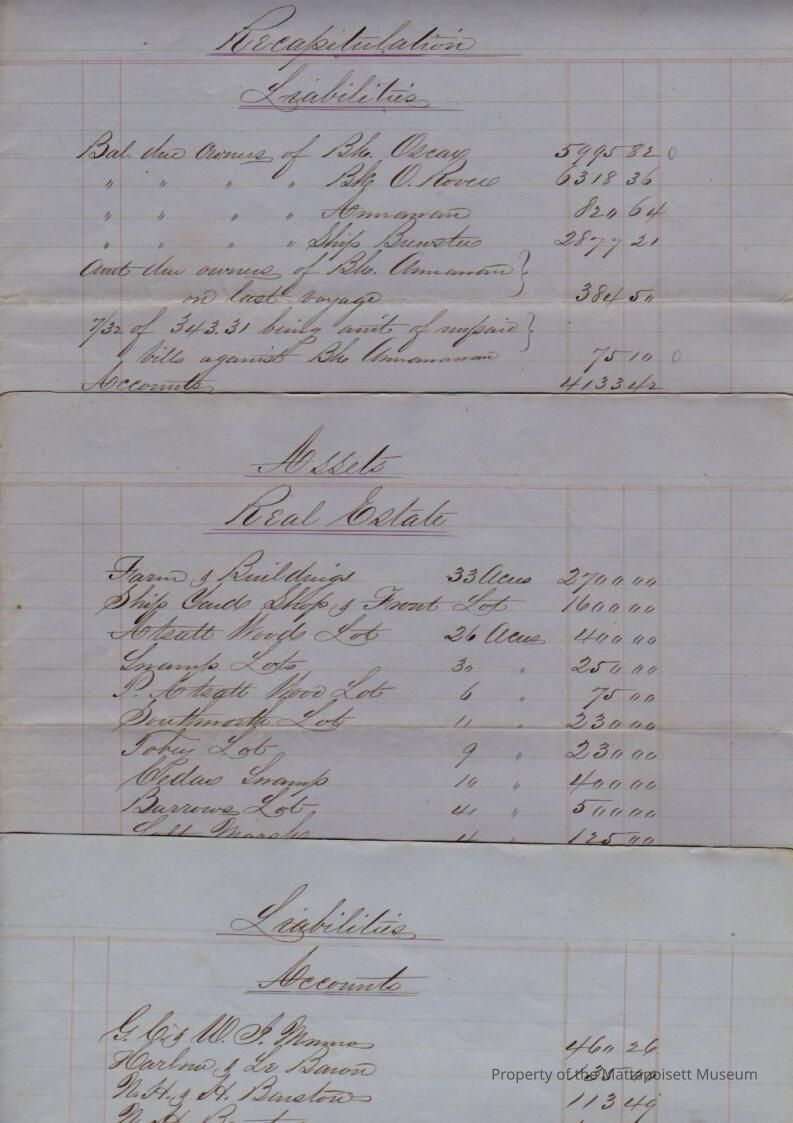 Recapitulation
Liabilities
Bal. due owners of Bk. Oscar 5995 82 0
" " " " Bk O. Rover 6318 36
" " " " Annawan 820 64
" " " " Ship Brewster 2877 21
Amt due owners of Bk. Annawan }
on last voyage 384 50
7/32 of 343.31 being amt. of unpaid }
bills against Bk Annawan 75 10 0
Accounts 4133 42
Assets
Real Estate
Farm & Buildings 33 Acres 2700 00
Ship Yard Shop & Front Lot 1600 00
Atsatt Wood Lot 26 Acres 400 00
Swamp Lots 30 " 250 00
P. Atsatt Wood Lot 6 " 75 00
Southworth Lot 11 " 230 00
Tobey Lot 9 " 230 00
Cedar Swamp 10 " 400 00
Barrows Lot 41 " 500 00
Salt Marsh 4 " 125 00
Liabilities
Accounts
G. C. & W. J. 460 26
Harlow & Le Baron
Property of the Mattapoisett Museum
N. H. & H. Barstow 113 49
N. H.